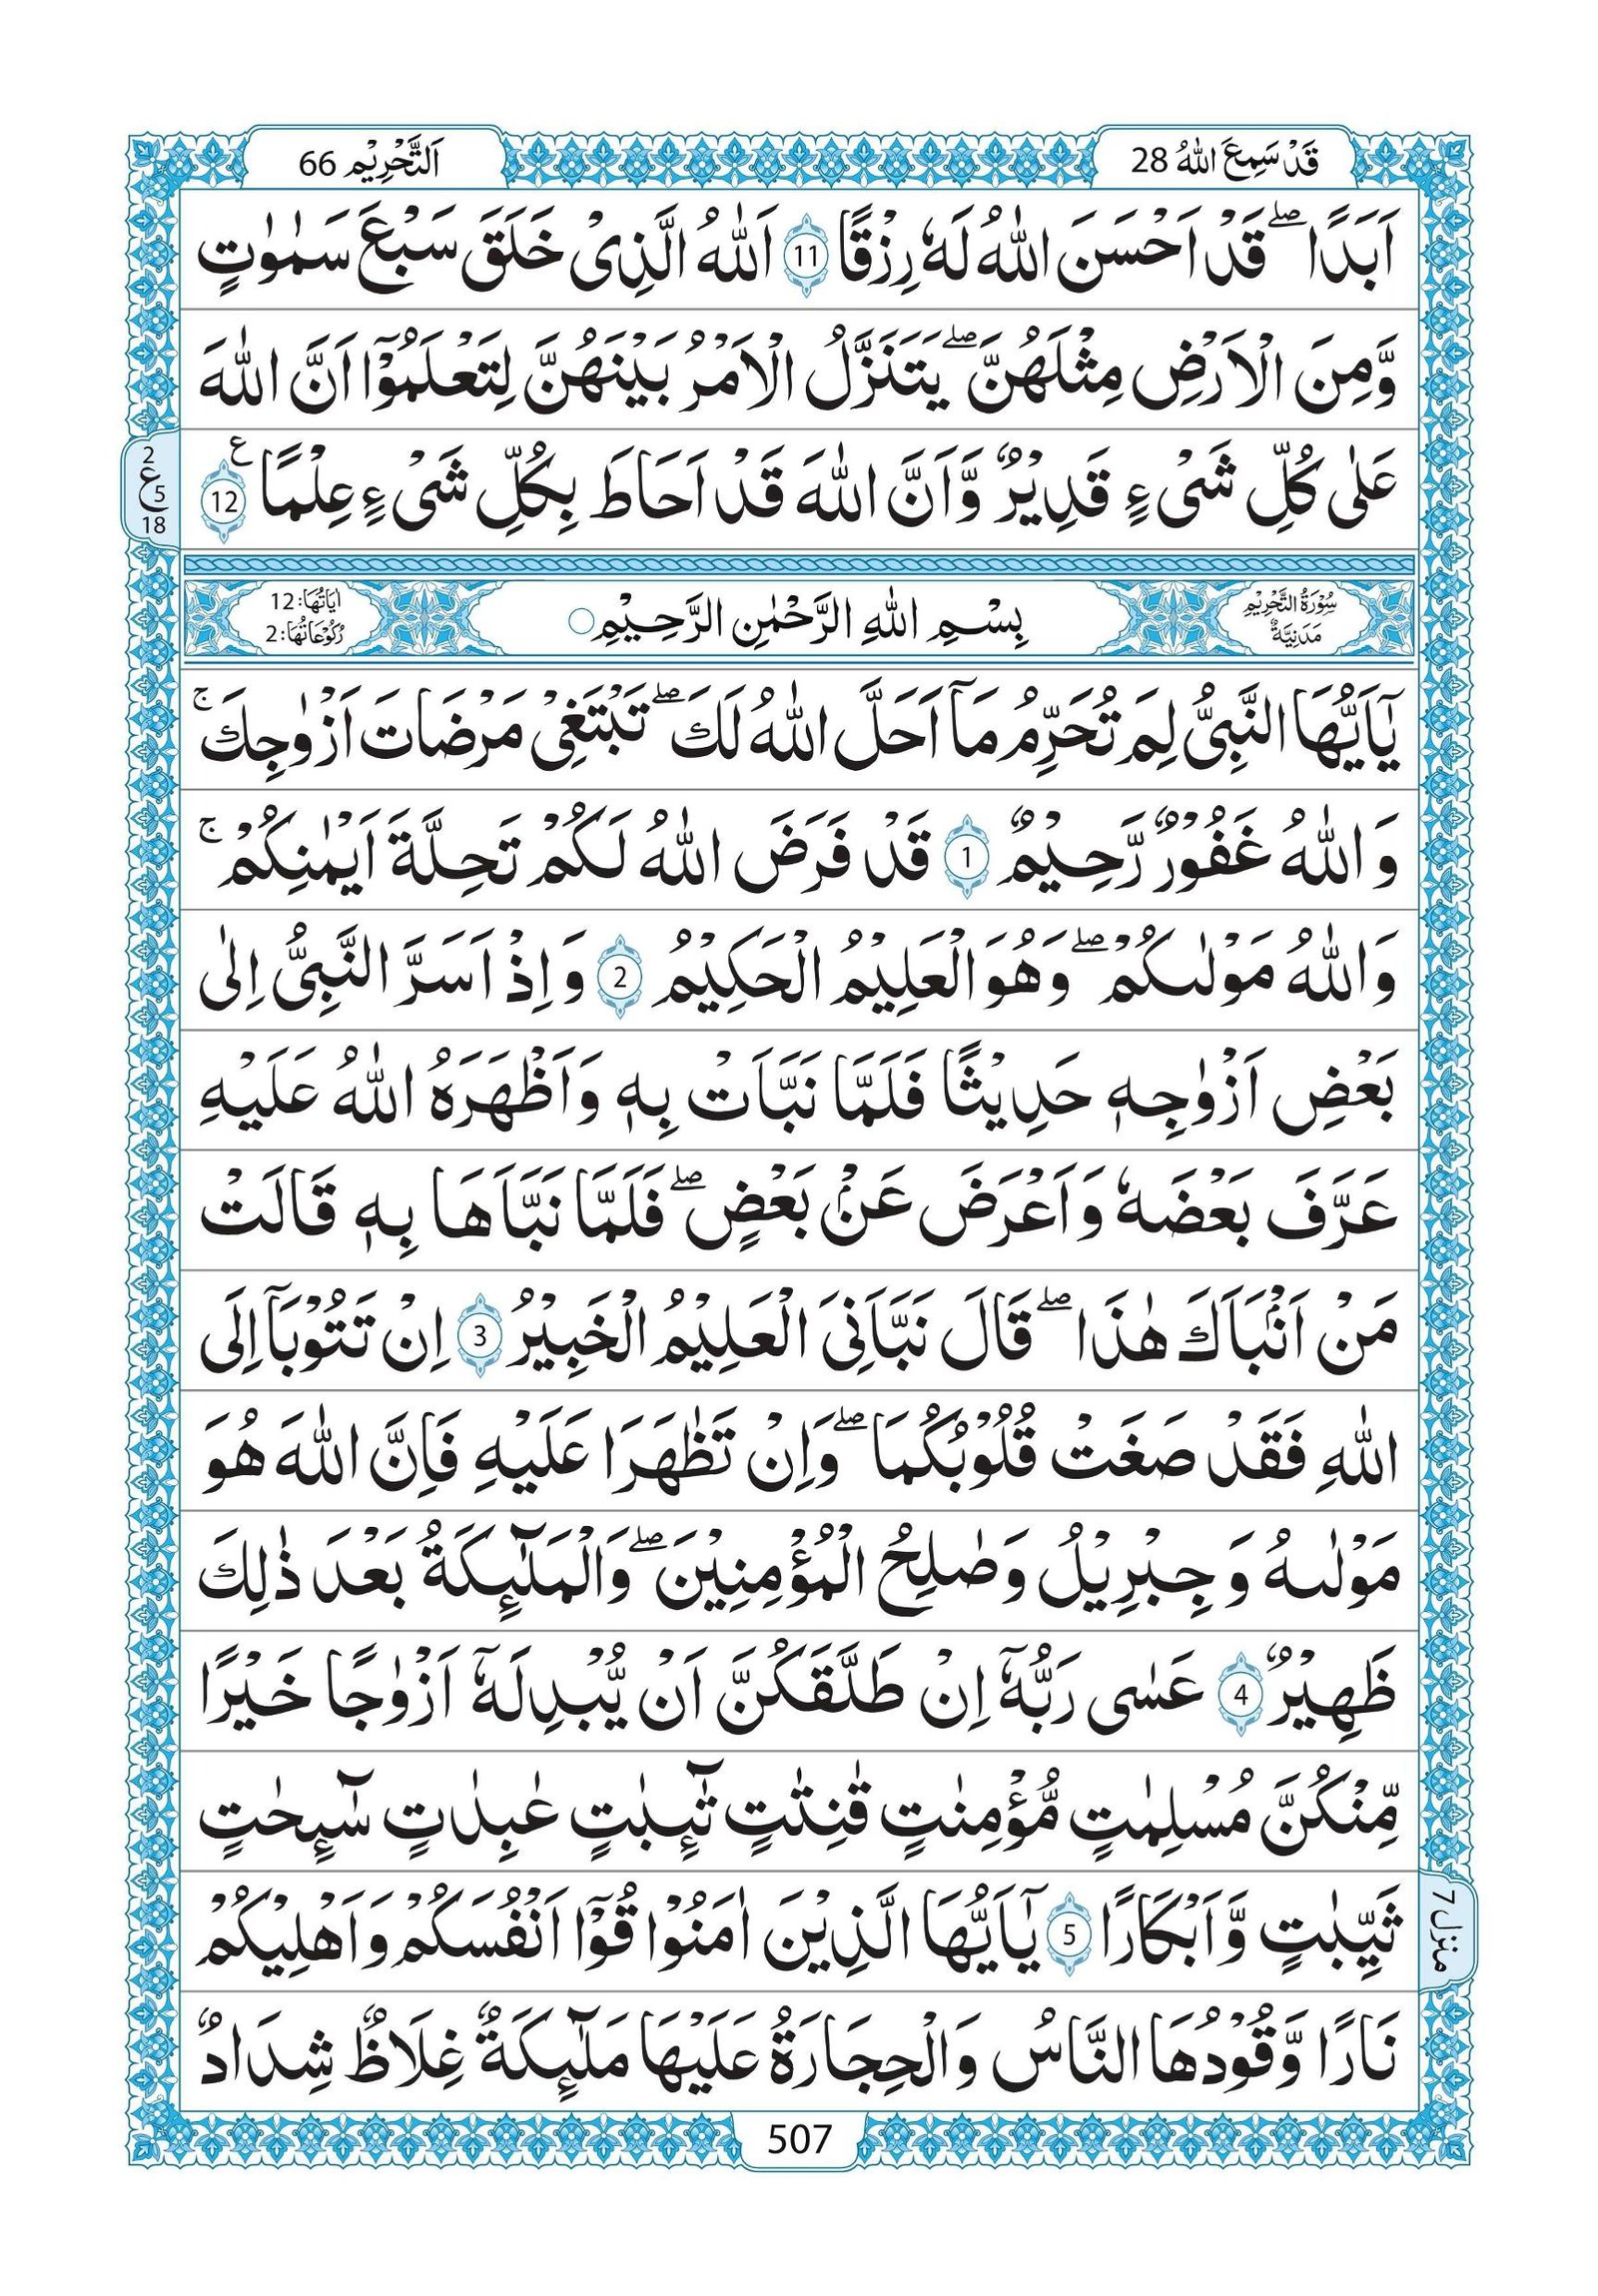 قَدْ سَمِعَ اللّٰهُ 28
اَلتَّحْرِيْم 66
اَبَدًا ۖ قَدْ اَحْسَنَ اللّٰهُ لَهٗ رِزْقًا 11 اَللّٰهُ الَّذِىْ خَلَقَ سَبْعَ سَمٰوٰتٍ
وَّمِنَ الْاَرْضِ مِثْلَهُنَّ ۖ يَتَنَزَّلُ الْاَمْرُ بَيْنَهُنَّ لِتَعْلَمُوْۤا اَنَّ اللّٰهَ
عَلٰى كُلِّ شَىْءٍ قَدِيْرٌ وَّاَنَّ اللّٰهَ قَدْ اَحَاطَ بِكُلِّ شَىْءٍ عِلْمًا 12 ع
2
ع 5
18
سُوْرَةُ التَّحْرِيْمِ
مَدَنِيَّةٌ
بِسْمِ اللّٰهِ الرَّحْمٰنِ الرَّحِيْمِ ○
اٰيَاتُهَا: 12
رُكُوْعَاتُهَا: 2
يٰۤاَيُّهَا النَّبِىُّ لِمَ تُحَرِّمُ مَاۤ اَحَلَّ اللّٰهُ لَكَ ۖ تَبْتَغِىْ مَرْضَاتَ اَزْوٰجِكَ ۚ
وَاللّٰهُ غَفُوْرٌ رَّحِيْمٌ 1 قَدْ فَرَضَ اللّٰهُ لَكُمْ تَحِلَّةَ اَيْمٰنِكُمْ ۚ
وَاللّٰهُ مَوْلٰىكُمْ ۖ وَهُوَ الْعَلِيْمُ الْحَكِيْمُ 2 وَاِذْ اَسَرَّ النَّبِىُّ اِلٰى
بَعْضِ اَزْوٰجِهٖ حَدِيْثًا فَلَمَّا نَبَّاَتْ بِهٖ وَاَظْهَرَهُ اللّٰهُ عَلَيْهِ
عَرَّفَ بَعْضَهٗ وَاَعْرَضَ عَنْۢ بَعْضٍ ۖ فَلَمَّا نَبَّاَهَا بِهٖ قَالَتْ
مَنْ اَنْۢبَاَكَ هٰذَا ۖ قَالَ نَبَّاَنِىَ الْعَلِيْمُ الْخَبِيْرُ 3 اِنْ تَتُوْبَاۤ اِلَى
اللّٰهِ فَقَدْ صَغَتْ قُلُوْبُكُمَا ۖ وَاِنْ تَظٰهَرَا عَلَيْهِ فَاِنَّ اللّٰهَ هُوَ
مَوْلٰىهُ وَجِبْرِيْلُ وَصٰلِحُ الْمُؤْمِنِيْنَ ۖ وَالْمَلٰٓئِكَةُ بَعْدَ ذٰلِكَ
ظَهِيْرٌ 4 عَسٰى رَبُّهٗۤ اِنْ طَلَّقَكُنَّ اَنْ يُّبْدِلَهٗۤ اَزْوٰجًا خَيْرًا
مِّنْكُنَّ مُسْلِمٰتٍ مُّؤْمِنٰتٍ قٰنِتٰتٍ تٰٓئِبٰتٍ عٰبِدٰتٍ سٰٓئِحٰتٍ
ثَيِّبٰتٍ وَّاَبْكَارًا 5 يٰۤاَيُّهَا الَّذِيْنَ اٰمَنُوْا قُوْۤا اَنْفُسَكُمْ وَاَهْلِيْكُمْ
منزل 7
نَارًا وَّقُوْدُهَا النَّاسُ وَالْحِجَارَةُ عَلَيْهَا مَلٰٓئِكَةٌ غِلَاظٌ شِدَادٌ
507